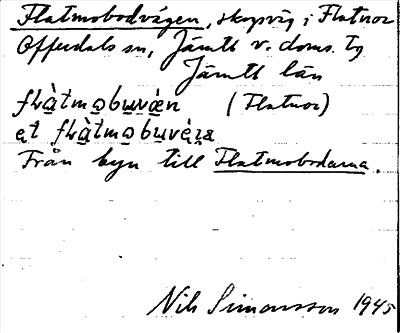 Flatmobodvägen, skogsväg i Flatnor
Offerdals sn, Jämtl v. doms. tg
Jämtl län
flàtmobuvä̀n (Flatnor)
et flàtmobuvä̀ja
Från byn till Flatmobodarna.
Nils Simonsson 1945